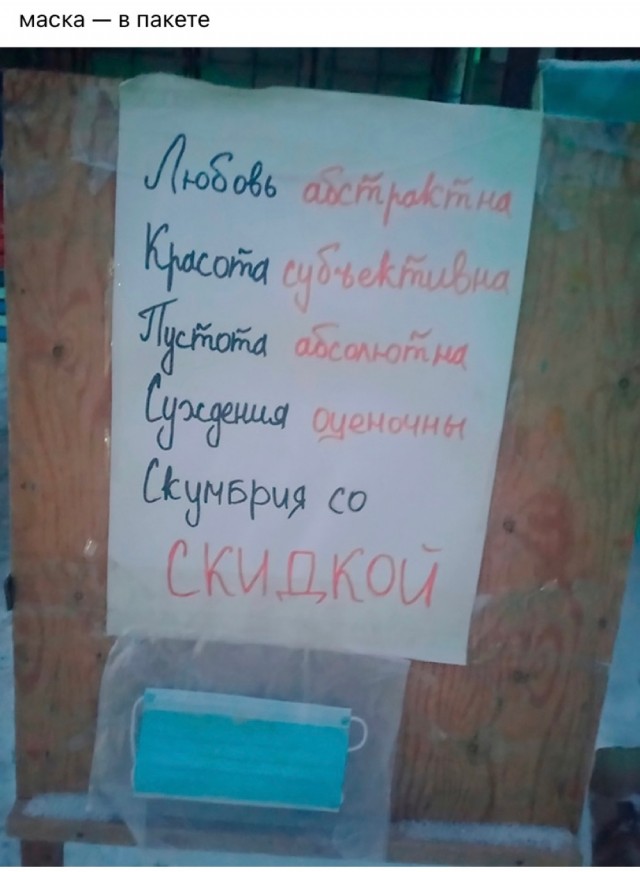 маска — в пакете
Любовь абстрактна
Красота субъективна
Пустота абсолютна
Суждения оценочны
Скумбрия со
СКИДКОЙ